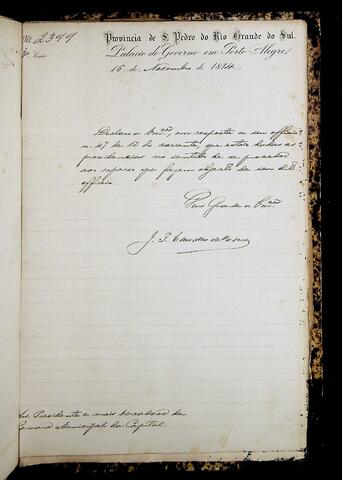 N. 2399
Provincia de S. Pedro do Rio Grande do Sul.
Palacio do Governo em Porto Alegre,
16 de Novembro de 1874.
Declaro a Vmces, em resposta a seu officio
n. 47 de 12 do corrente, que estão dadas as
providencias no sentido de se proceder
aos reparos que fazem objecto de seu dito
officio.
Deus Guarde a Vmces
J. P. Carvalho de Moraes
Srs. Presidente e mais vereadores da
Camara Municipal da Capital.